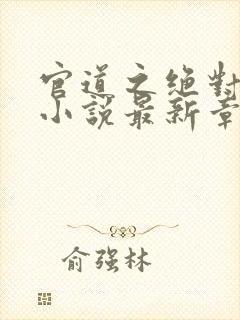 官道之绝对
小說最新章
俞强林